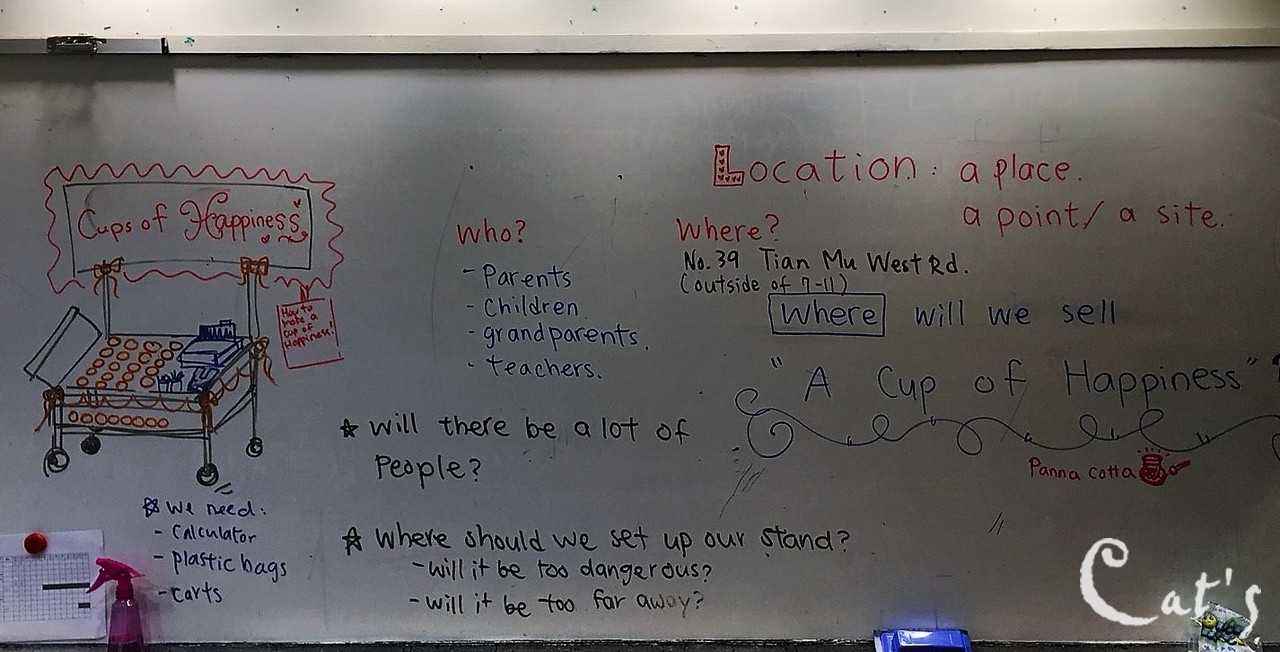 Cups of Happiness
How to
make a
cup of
Happiness!
☆ We need:
- Calculator
- plastic bags
- carts
Who?
- Parents
- Children
- grandparents.
- teachers.
☆ Will there be a lot of
People?
☆ Where should we set up our stand?
- will it be too dangerous?
- will it be too far away?
Location: a place.
a point/ a site.
Where?
No. 39 Tian Mu West Rd.
(outside of 7-11)
Where will we sell
"A Cup of Happiness"?
Panna cotta
Cat's